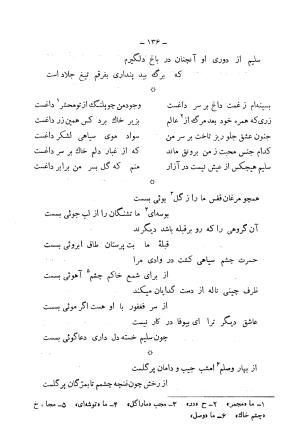 ـ ۱۳۶ ـ
سلیم از دوری او آنچنان در باغ دلگیرم
که برگ بید پنداری بفرقم تیغ جلاد است
*
بسینه‌ام ز غمت داغ بر سر داغست وجود من چو پلنگ از تو محشر۱ داغست
زری که همره خود بعد مرگ از۲ عالم بزیر خاک برد کس همین زر داغست
جنون عشق چلو ریز تاخت بر سر من سواد موی سیاهی لشکر داغست
کدام جنس محبت ز من برونق ماند که از غبار دلم خاک بر سر داغست
سلیم هیچکس از عیش نیست در آزار منم که گل بسر من برابر داغست
*
همچو مرغان قفس ما را ز گل۳ بوئی بست
بوسه‌ای۴ ما تشنگان را از لب جوئی بست
آن گروهی را که رو برقبله باشد دیگرند
قبلهٔ ما بت پرستان طاق ابروئی بست
حسرت چشم سیاهی کشت در وادی مرا
از برای شمع خاکم چشم۵ آهوئی بست
ظرف چینی ناله از دست گدایان میکند
از سر فغفور با او هست اگر موئی بست
عاشق دیگر ترا ای بیوفا در کار نیست
چون سلیم خسته دل داری دعاگوئی بست
*
از بهار وصلم۶ امشب جیب و دامان پرگلست
از رخش چون غنچه چشمم تا بمژگان پرگلست
۱ـ ما «مجمر» ۲ـ ح «در» ۳ـ مجب «ماراگل» ۴ـ ما «توشه‌ای» ۵ـ مجا ، خ
«چشم خاک» ۶ـ ما «وصل»